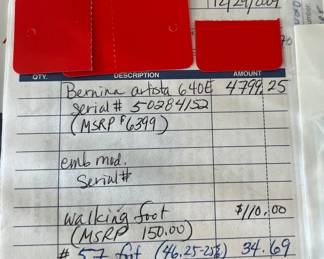 12/29/2009
QTY. DESCRIPTION AMOUNT
Bernina artista 640E 4799.25
serial# 50284152
(MSRP $6399)
emb mod.
Serial#
walking foot $110.00
(MSRP 150.00)
# 57 foot (46.25-25%) 34.69